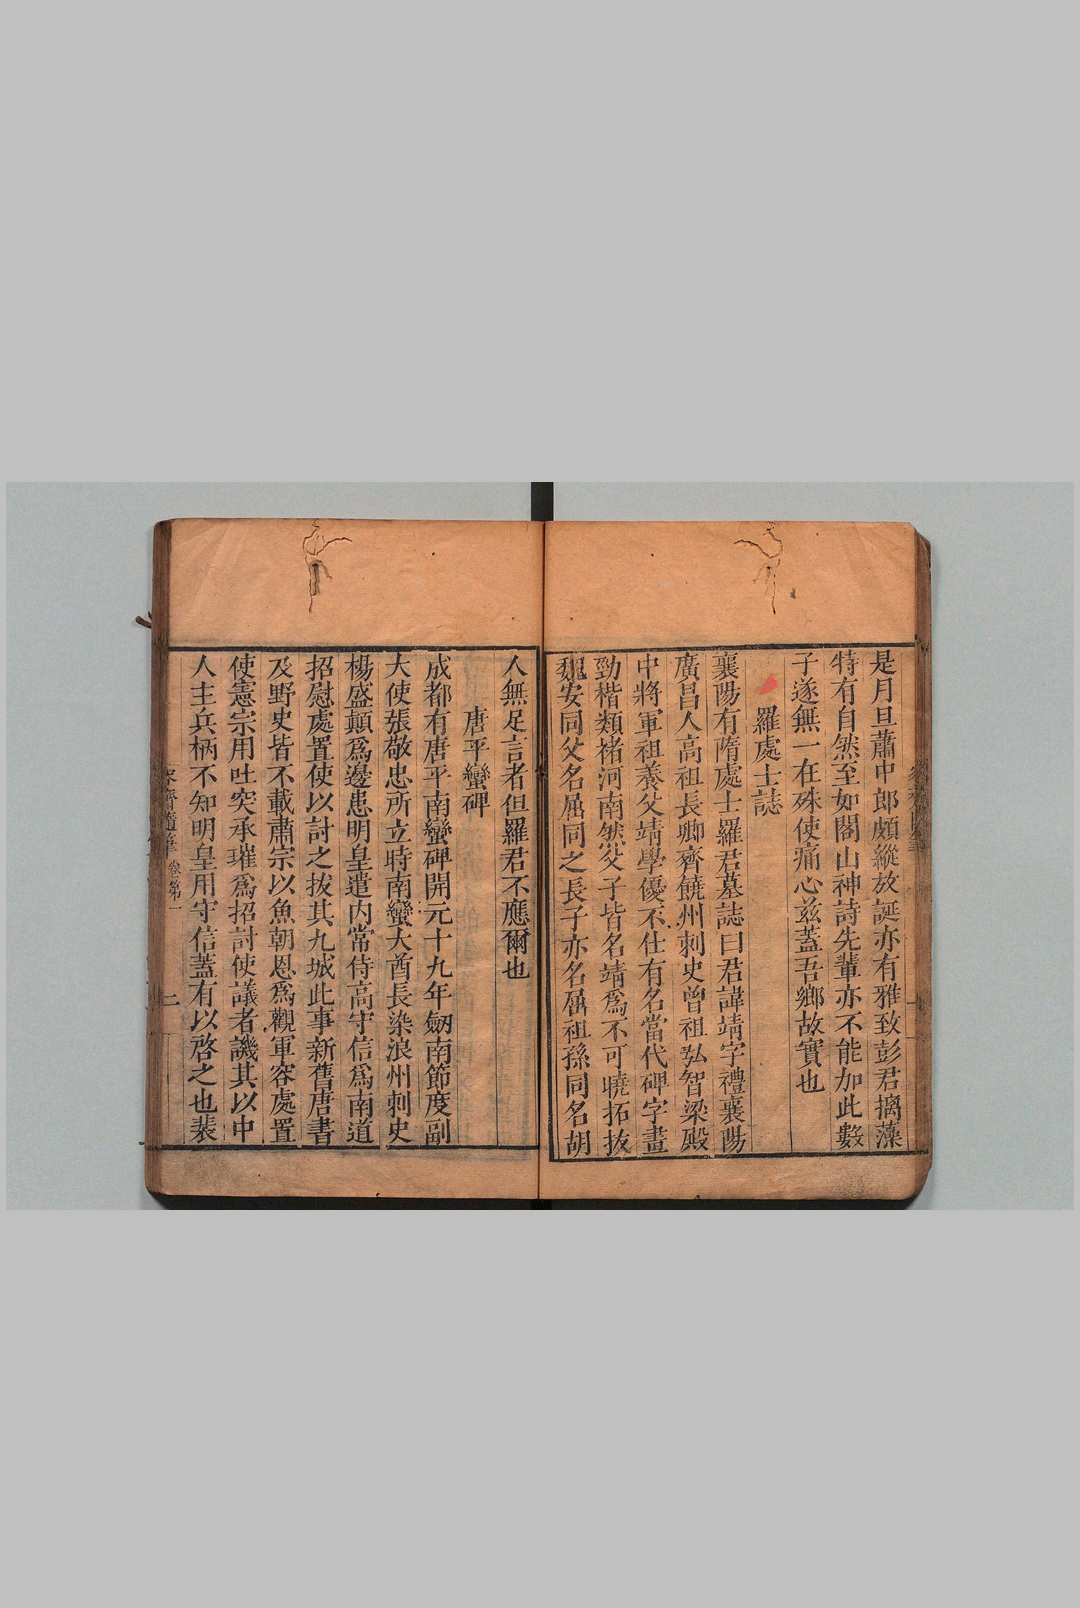 是月旦蕭中郎頗縱放誕亦有雅致彭君摛藻
特有自然至如閣山神詩先輩亦不能加此數
子遂無一在殊使痛心兹蓋吾鄉故實也
羅處士誌
襄陽有隋處士羅君墓誌曰君諱靖字禮襄陽
廣昌人高祖長卿齊饒州刺史曾祖弘智梁殿
中將軍祖養父靖學優不仕有名當代碑字畫
勁楷類禇河南然父子皆名靖爲不可曉拓拔
魏安同父名屈同之長子亦名屈祖孫同名胡
人無足言者但羅君不應爾也
唐平蠻碑
成都有唐平南蠻碑開元十九年劒南節度副
大使張敬忠所立時南蠻大酋長染浪州刺史
楊盛顛爲邊患明皇遣内常侍高守信爲南道
招慰處置使以討之拔其九城此事新舊唐書
及野史皆不載肅宗以魚朝恩爲觀軍容處置
使憲宗用吐突承璀爲招討使議者譏其以中
人主兵柄不知明皇用守信蓋有以啓之也裴
容齋隨筆 卷第一
二